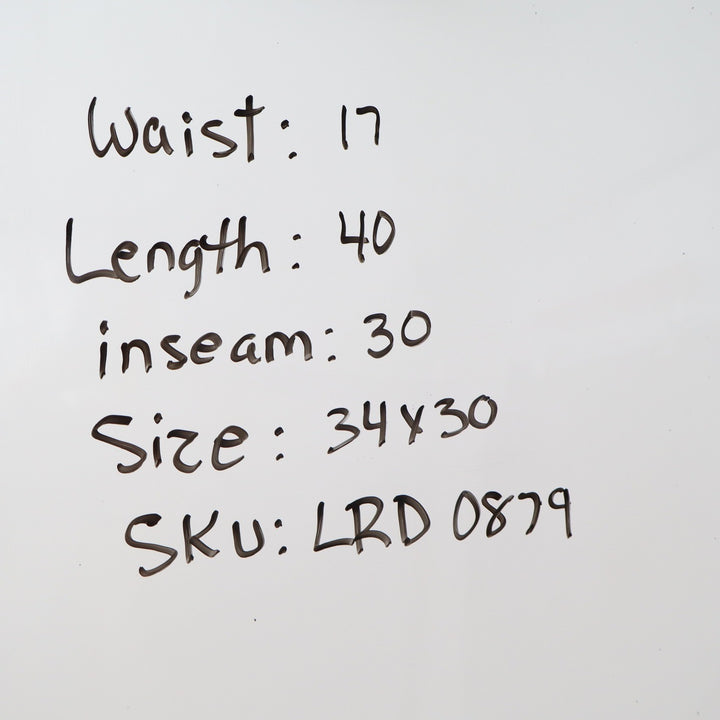 Waist: 17
Length: 40
inseam: 30
Size: 34x30
SKU: LRD 0879